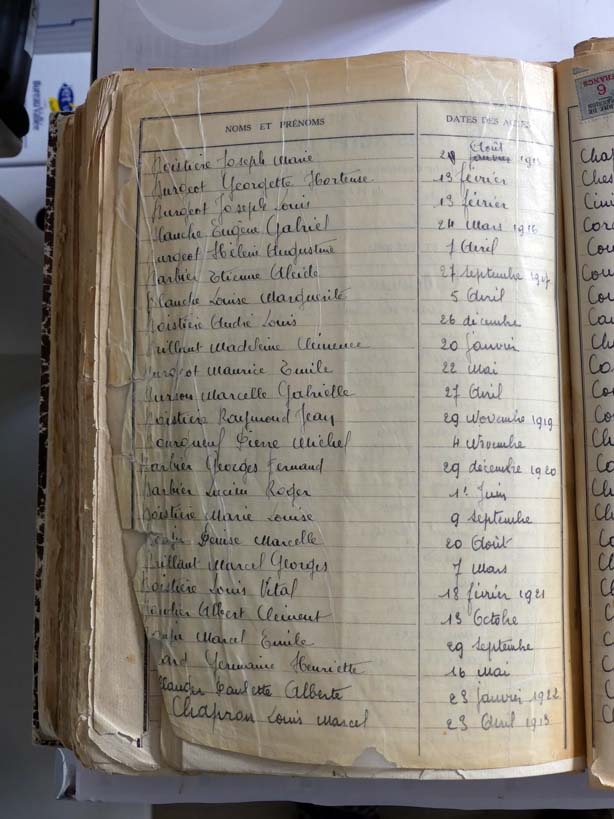 NOMS ET PRÉNOMS DATES DES ACTES
Boistière Joseph Marie 2 Août 191
Burgeot Georgette Hortense 13 février
Burgeot Joseph Louis 13 février
Blanche Eugène Gabriel 24 Mars 1916
Burgeot Hélène Augustine 7 Avril
Barbier Etienne Alcide 27 Septembre 1917
Blanche Louise Marguerite 5 Avril
Boistière André Louis 26 décembre
Brillant Madeleine Clémence 20 Janvier
Burgeot Maurice Emile 22 Mai
Marcelle Gabrielle 27 Avril
Boistière Raymond Jean 29 Novembre 1919
Pierre Michel 4 Novembre
Barbier Georges Fernand 29 décembre 1920
Barbier Lucien Roger 1er Juin
Boistière Marie Louise 9 Septembre
Denise Marcelle 20 Août
Brillant Marcel Georges 7 Mars
Boistière Louis Vital 18 février 1921
Albert Clément 13 Octobre
Marcel Emile 29 Septembre
Germaine Henriette 16 Mai
Paulette Alberte 23 Janvier 1922
Chapron Louis Marcel 23 Avril 1913